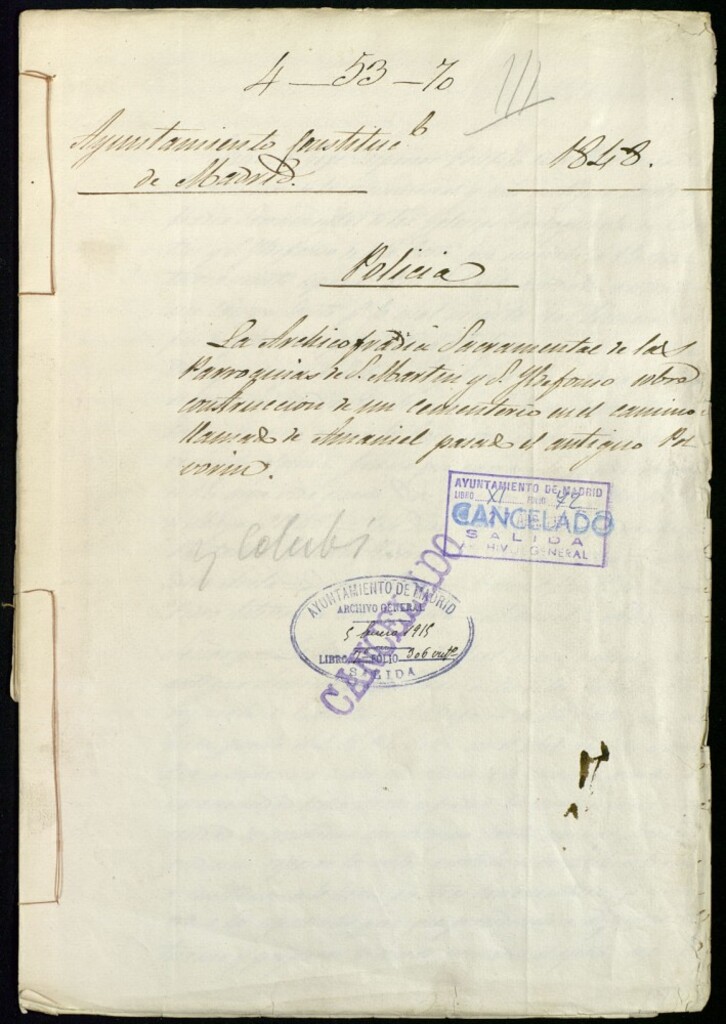 4-53-70
Ayuntamiento Constituc.l
de Madrid.
1848.
Policia
La Archicofradia Sacramental de las
Parroquias de S. Martin y S. Yldefonso sobre
construccion de un cementerio en el camino
llamado de Amaniel pasado el antiguo Pol
vorin.
AYUNTAMIENTO DE MADRID
LIBRO XI FOLIO 72
CANCELADO
SALIDA
ARCHIVO GENERAL
CANCELADO
AYUNTAMIENTO DE MADRID
ARCHIVO GENERAL
5 Enero 1915
LIBRO FOLIO 306 vuto
SALIDA